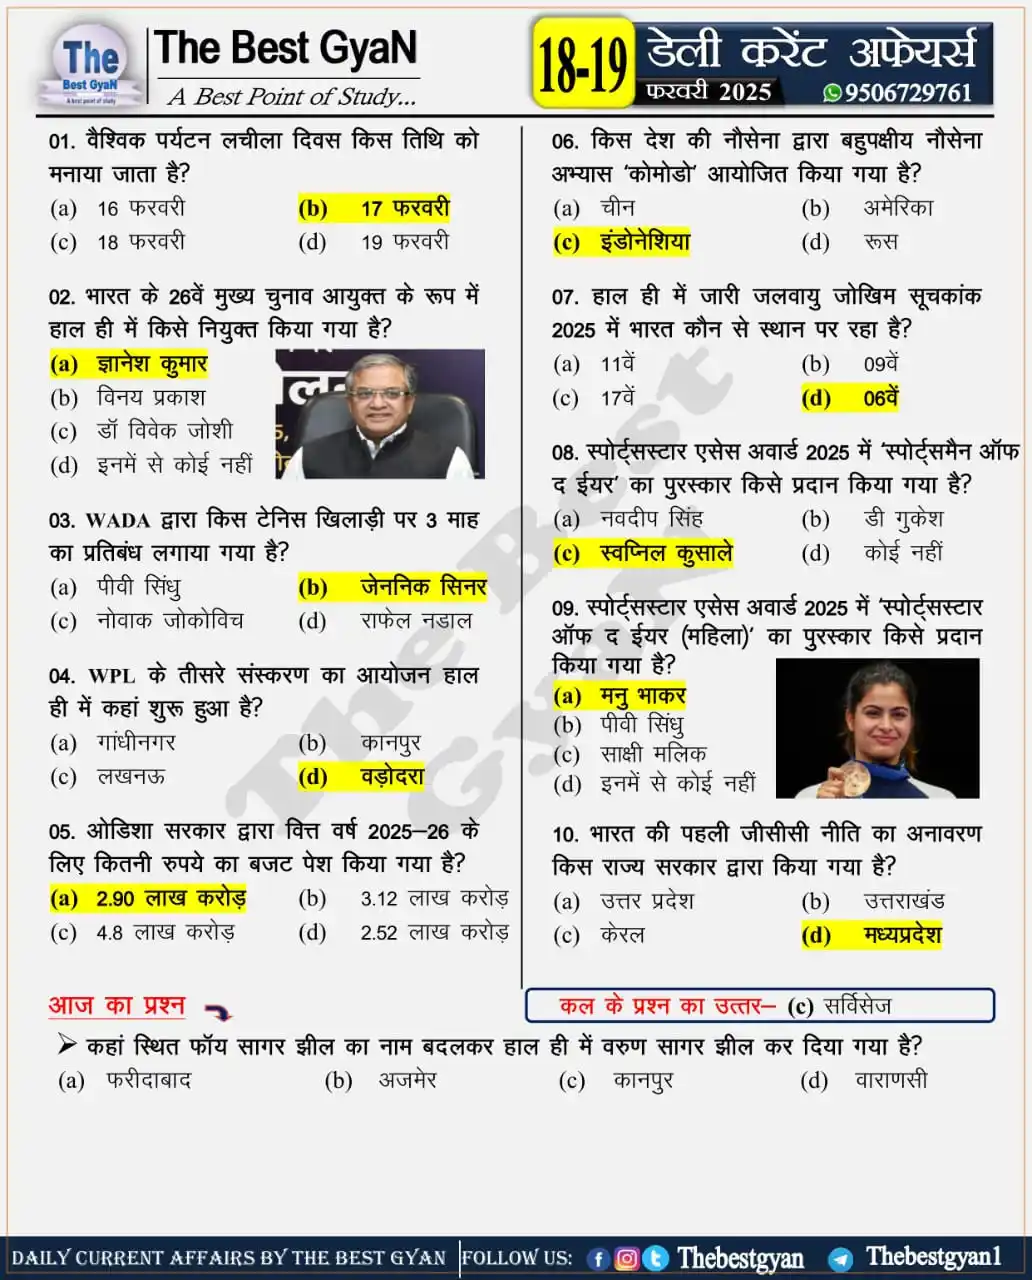 The
Best GyaN
A best point of study
The Best GyaN
A Best Point of Study...
18-19
डेली करेंट अफेयर्स
फरवरी 2025
9506729761
01. वैश्विक पर्यटन लचीला दिवस किस तिथि को
मनाया जाता है?
(a) 16 फरवरी (b) 17 फरवरी
(c) 18 फरवरी (d) 19 फरवरी
02. भारत के 26वें मुख्य चुनाव आयुक्त के रूप में
हाल ही में किसे नियुक्त किया गया है?
(a) ज्ञानेश कुमार
(b) विनय प्रकाश
(c) डॉ विवेक जोशी
(d) इनमें से कोई नहीं
03. WADA द्वारा किस टेनिस खिलाड़ी पर 3 माह
का प्रतिबंध लगाया गया है?
(a) पीवी सिंधु (b) जेननिक सिनर
(c) नोवाक जोकोविच (d) राफेल नडाल
04. WPL के तीसरे संस्करण का आयोजन हाल
ही में कहां शुरू हुआ है?
(a) गांधीनगर (b) कानपुर
(c) लखनऊ (d) वड़ोदरा
05. ओडिशा सरकार द्वारा वित्त वर्ष 2025–26 के
लिए कितनी रुपये का बजट पेश किया गया है?
(a) 2.90 लाख करोड़ (b) 3.12 लाख करोड़
(c) 4.8 लाख करोड़ (d) 2.52 लाख करोड़
06. किस देश की नौसेना द्वारा बहुपक्षीय नौसेना
अभ्यास ‘कोमोडो’ आयोजित किया गया है?
(a) चीन (b) अमेरिका
(c) इंडोनेशिया (d) रूस
07. हाल ही में जारी जलवायु जोखिम सूचकांक
2025 में भारत कौन से स्थान पर रहा है?
(a) 11वें (b) 09वें
(c) 17वें (d) 06वें
08. स्पोर्ट्सस्टार एसेस अवार्ड 2025 में ‘स्पोर्ट्समैन ऑफ
द ईयर’ का पुरस्कार किसे प्रदान किया गया है?
(a) नवदीप सिंह (b) डी गुकेश
(c) स्वप्निल कुसाले (d) कोई नहीं
09. स्पोर्ट्सस्टार एसेस अवार्ड 2025 में ‘स्पोर्ट्सस्टार
ऑफ द ईयर (महिला)’ का पुरस्कार किसे प्रदान
किया गया है?
(a) मनु भाकर
(b) पीवी सिंधु
(c) साक्षी मलिक
(d) इनमें से कोई नहीं
10. भारत की पहली जीसीसी नीति का अनावरण
किस राज्य सरकार द्वारा किया गया है?
(a) उत्तर प्रदेश (b) उत्तराखंड
(c) केरल (d) मध्यप्रदेश
The Best
GyaN
आज का प्रश्न
कल के प्रश्न का उत्तर– (c) सर्विसेज
➢ कहां स्थित फॉय सागर झील का नाम बदलकर हाल ही में वरुण सागर झील कर दिया गया है?
(a) फरीदाबाद (b) अजमेर (c) कानपुर (d) वाराणसी
DAILY CURRENT AFFAIRS BY THE BEST GYAN FOLLOW US: Thebestgyan Thebestgyan1